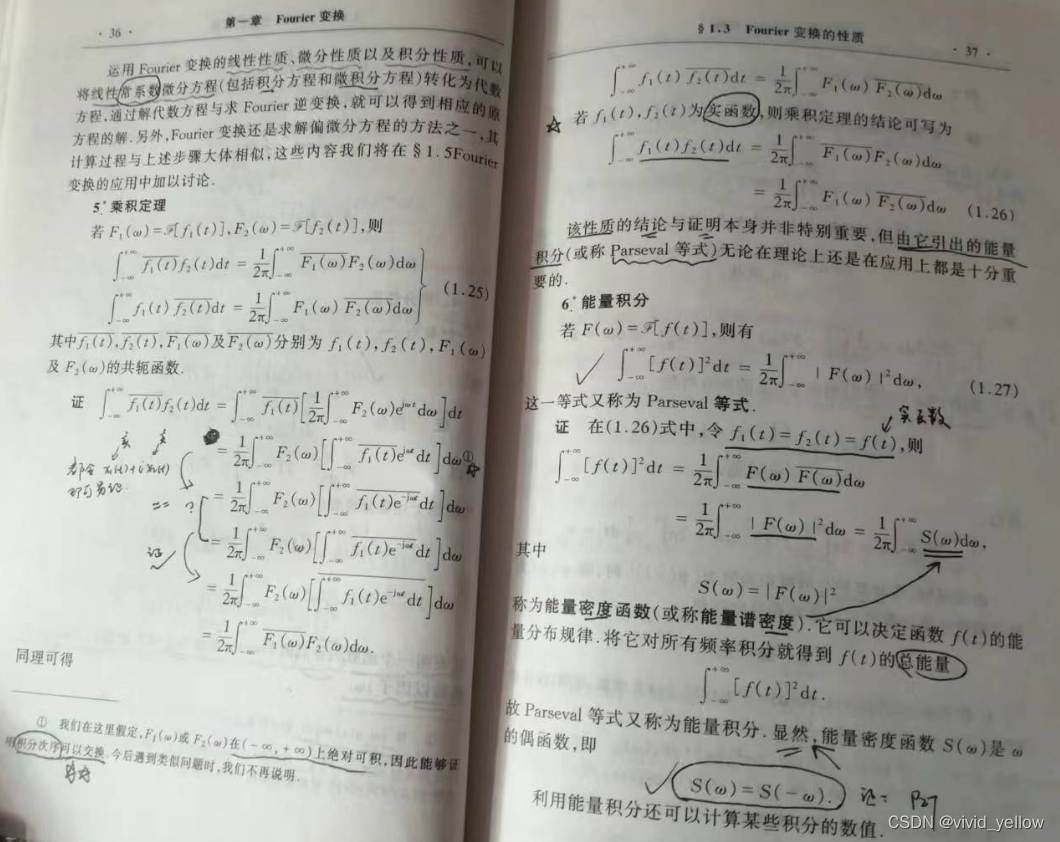 · 36 ·
第一章 Fourier 变换
运用 Fourier 变换的线性性质、微分性质以及积分性质,可以
将线性常系数微分方程(包括积分方程和微积分方程)转化为代数
方程,通过解代数方程与求 Fourier 逆变换,就可以得到相应的原
方程的解.另外,Fourier 变换还是求解偏微分方程的方法之一,其
计算过程与上述步骤大体相似,这些内容我们将在 § 1.5Fourier
变换的应用中加以讨论.
5° 乘积定理
若 F₁(ω)=ℱ[f₁(t)],F₂(ω)=ℱ[f₂(t)],则
∫_{-∞}^{+∞} \overline{f₁(t)}f₂(t)dt = \frac{1}{2π}∫_{-∞}^{+∞} \overline{F₁(ω)}F₂(ω)dω
∫_{-∞}^{+∞} f₁(t) \overline{f₂(t)}dt = \frac{1}{2π}∫_{-∞}^{+∞} F₁(ω) \overline{F₂(ω)}dω
(1.25)
其中\overline{f₁(t)},\overline{f₂(t)},\overline{F₁(ω)}及\overline{F₂(ω)}分别为 f₁(t),f₂(t),F₁(ω)
及 F₂(ω)的共轭函数.
证 ∫_{-∞}^{+∞} \overline{f₁(t)}f₂(t)dt = ∫_{-∞}^{+∞} \overline{f₁(t)}[\frac{1}{2π}∫_{-∞}^{+∞} F₂(ω)e^{jωt}dω]dt
= \frac{1}{2π}∫_{-∞}^{+∞} F₂(ω)[∫_{-∞}^{+∞} \overline{f₁(t)}e^{jωt}dt]dω①
= \frac{1}{2π}∫_{-∞}^{+∞} F₂(ω)[∫_{-∞}^{+∞} \overline{f₁(t)}\overline{e^{-jωt}}dt]dω
= \frac{1}{2π}∫_{-∞}^{+∞} F₂(ω)[∫_{-∞}^{+∞} \overline{f₁(t)e^{-jωt}}dt]dω
证
= \frac{1}{2π}∫_{-∞}^{+∞} F₂(ω)[\overline{∫_{-∞}^{+∞} f₁(t)e^{-jωt}dt}]dω
= \frac{1}{2π}∫_{-∞}^{+∞} \overline{F₁(ω)}F₂(ω)dω.
同理可得
① 我们在这里假定,F₁(ω)或 F₂(ω)在(-∞,+∞)上绝对可积,因此能够证
明积分次序可以交换.今后遇到类似问题时,我们不再说明.
§ 1.3 Fourier 变换的性质
· 37 ·
∫_{-∞}^{+∞} f₁(t) \overline{f₂(t)}dt = \frac{1}{2π}∫_{-∞}^{+∞} F₁(ω) \overline{F₂(ω)}dω
☆ 若 f₁(t),f₂(t)为实函数,则乘积定理的结论可写为
∫_{-∞}^{+∞} f₁(t)f₂(t)dt = \frac{1}{2π}∫_{-∞}^{+∞} \overline{F₁(ω)}F₂(ω)dω
= \frac{1}{2π}∫_{-∞}^{+∞} F₁(ω) \overline{F₂(ω)}dω (1.26)
该性质的结论与证明本身并非特别重要,但由它引出的能量
积分(或称 Parseval 等式)无论在理论上还是在应用上都是十分重
要的.
6° 能量积分
若 F(ω)=ℱ[f(t)],则有
√ ∫_{-∞}^{+∞} [f(t)]²dt = \frac{1}{2π}∫_{-∞}^{+∞} |F(ω)|²dω, (1.27)
这一等式又称为 Parseval 等式.
实函数
证 在(1.26)式中,令 f₁(t)=f₂(t)=f(t),则
∫_{-∞}^{+∞} [f(t)]²dt = \frac{1}{2π}∫_{-∞}^{+∞} F(ω) \overline{F(ω)}dω
= \frac{1}{2π}∫_{-∞}^{+∞} |F(ω)|²dω = \frac{1}{2π}∫_{-∞}^{+∞} S(ω)dω,
其中
S(ω)=|F(ω)|²
称为能量密度函数(或称能量谱密度).它可以决定函数 f(t)的能
量分布规律.将它对所有频率积分就得到 f(t)的总能量
∫_{-∞}^{+∞} [f(t)]²dt.
故 Parseval 等式又称为能量积分.显然,能量密度函数 S(ω)是 ω
的偶函数,即
√ S(ω)=S(-ω). 证: P27
利用能量积分还可以计算某些积分的数值.
CSDN @vivid_yellow